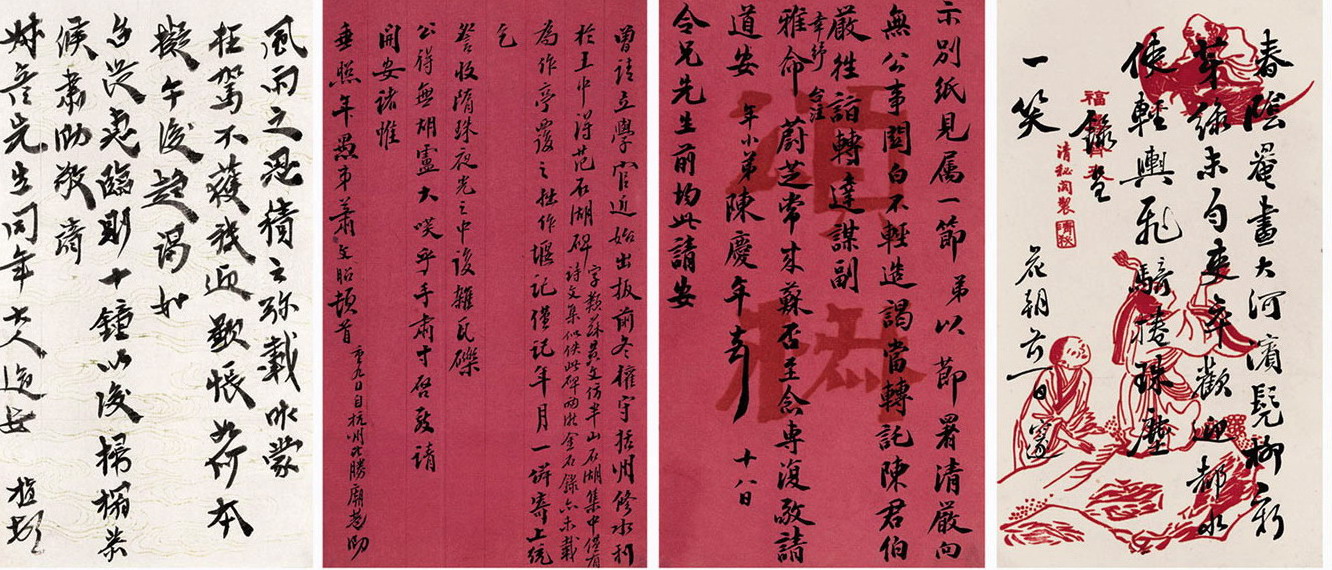 春陰罨畫大河濱髡柳新
芽綠未勻吏卒歡迎都水
使輕輿飛騎捲珠塵
一笑
花朝前一日
福祿壽考
清秘閣製
示別紙見属一節 弟以 節署清嚴向
無公事關白不輕造謁當轉託陳君伯
嚴甡諳轉達謀副
幸紓台注
雅命 蔚芝常来蘇否至念專復敬請
道安 年小弟陳慶年 十八日
令兄先生前均此請安
曾請立學官近始出板前冬權守括州修水利
於王中得范石湖碑
字類蘇黃文仿半山石湖集中僅有
詩文集似佚此碑兩浙金石錄亦未載
為作亭覆之拙作堰記僅記年月一併寄上統
乞
詧收隋珠夜光之中復雜瓦礫
公得無胡盧大噱乎手肅寸啓敬請
開安諸惟
垂照年愚弟蕭文昭頓首 重九日自杭州勝廟巷泐
風雨之思積之弥載昨蒙
枉駕不獲祗迎歉悵如何本
擬午後趨謁如
台從惠臨則十鐘以後掃榻恭
候肅泐敬請
先生同年大人道安 植頓